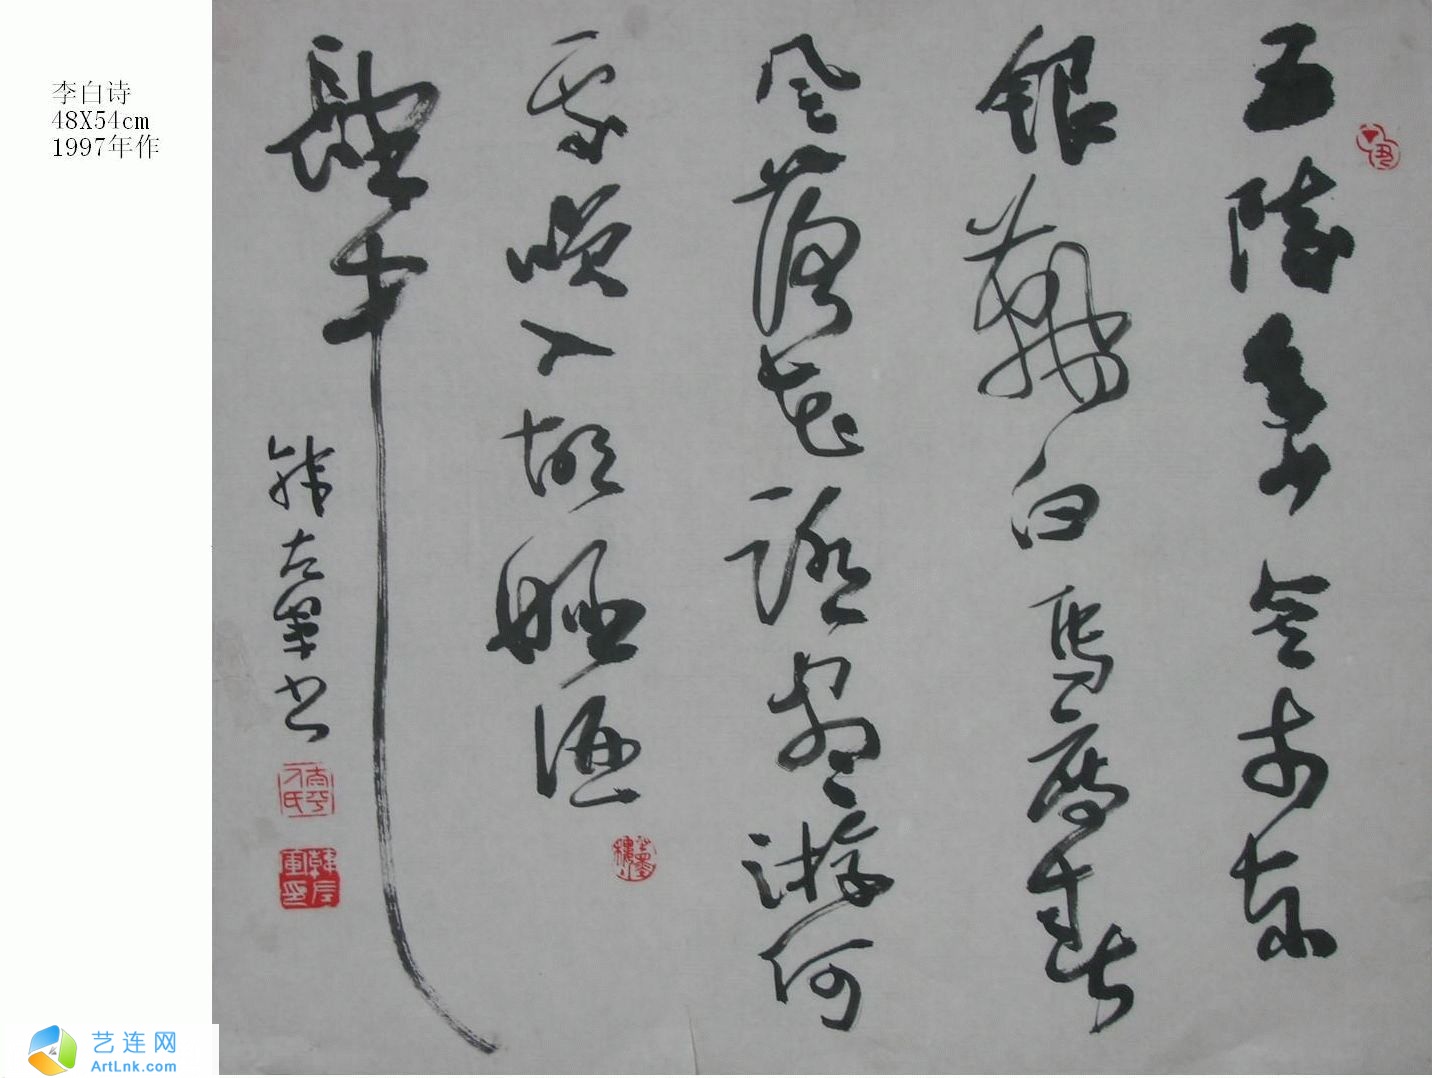 李白诗
48X54cm
1997年作
五陵年少金市东
銀鞍白馬度春
風落花踏盡游何
處笑入胡姬酒
肆中
韩左军书
艺连网
ArtLnk.com